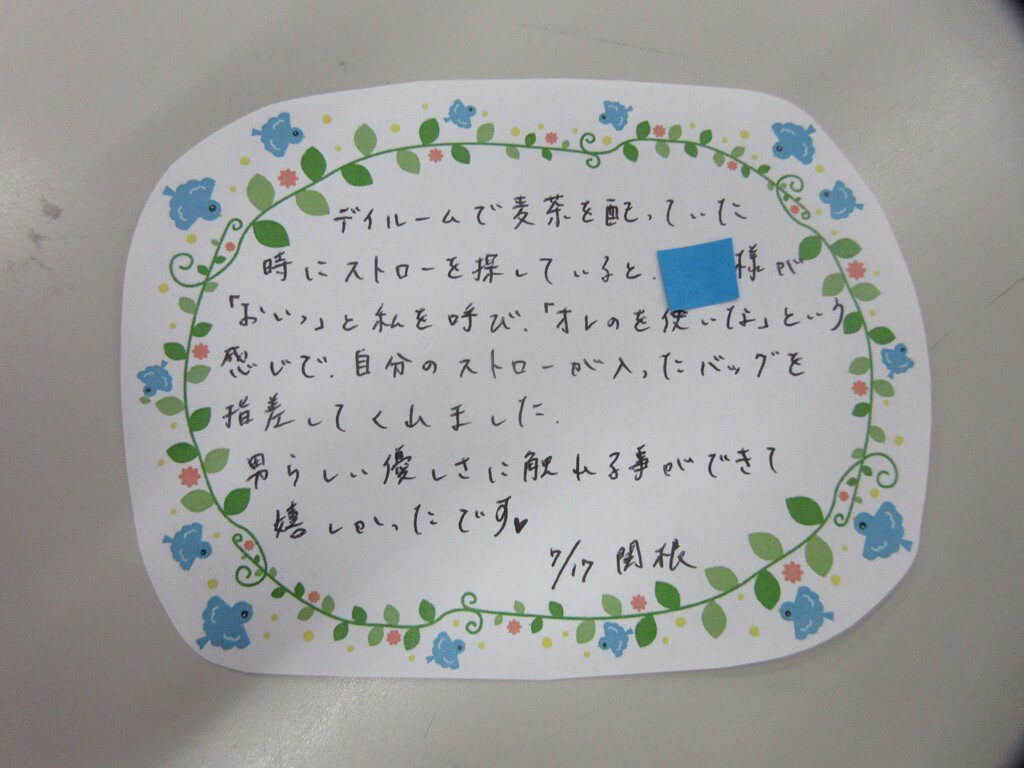 デイルームで麦茶を配っていた
時にストローを探していると、様が
「おいっ」と私を呼び、「オレのを使いな」という
感じで、自分のストローが入ったバッグを
指差してくれました。
男らしい優しさに触れる事ができて
嬉しかったです♥
7/17 関根